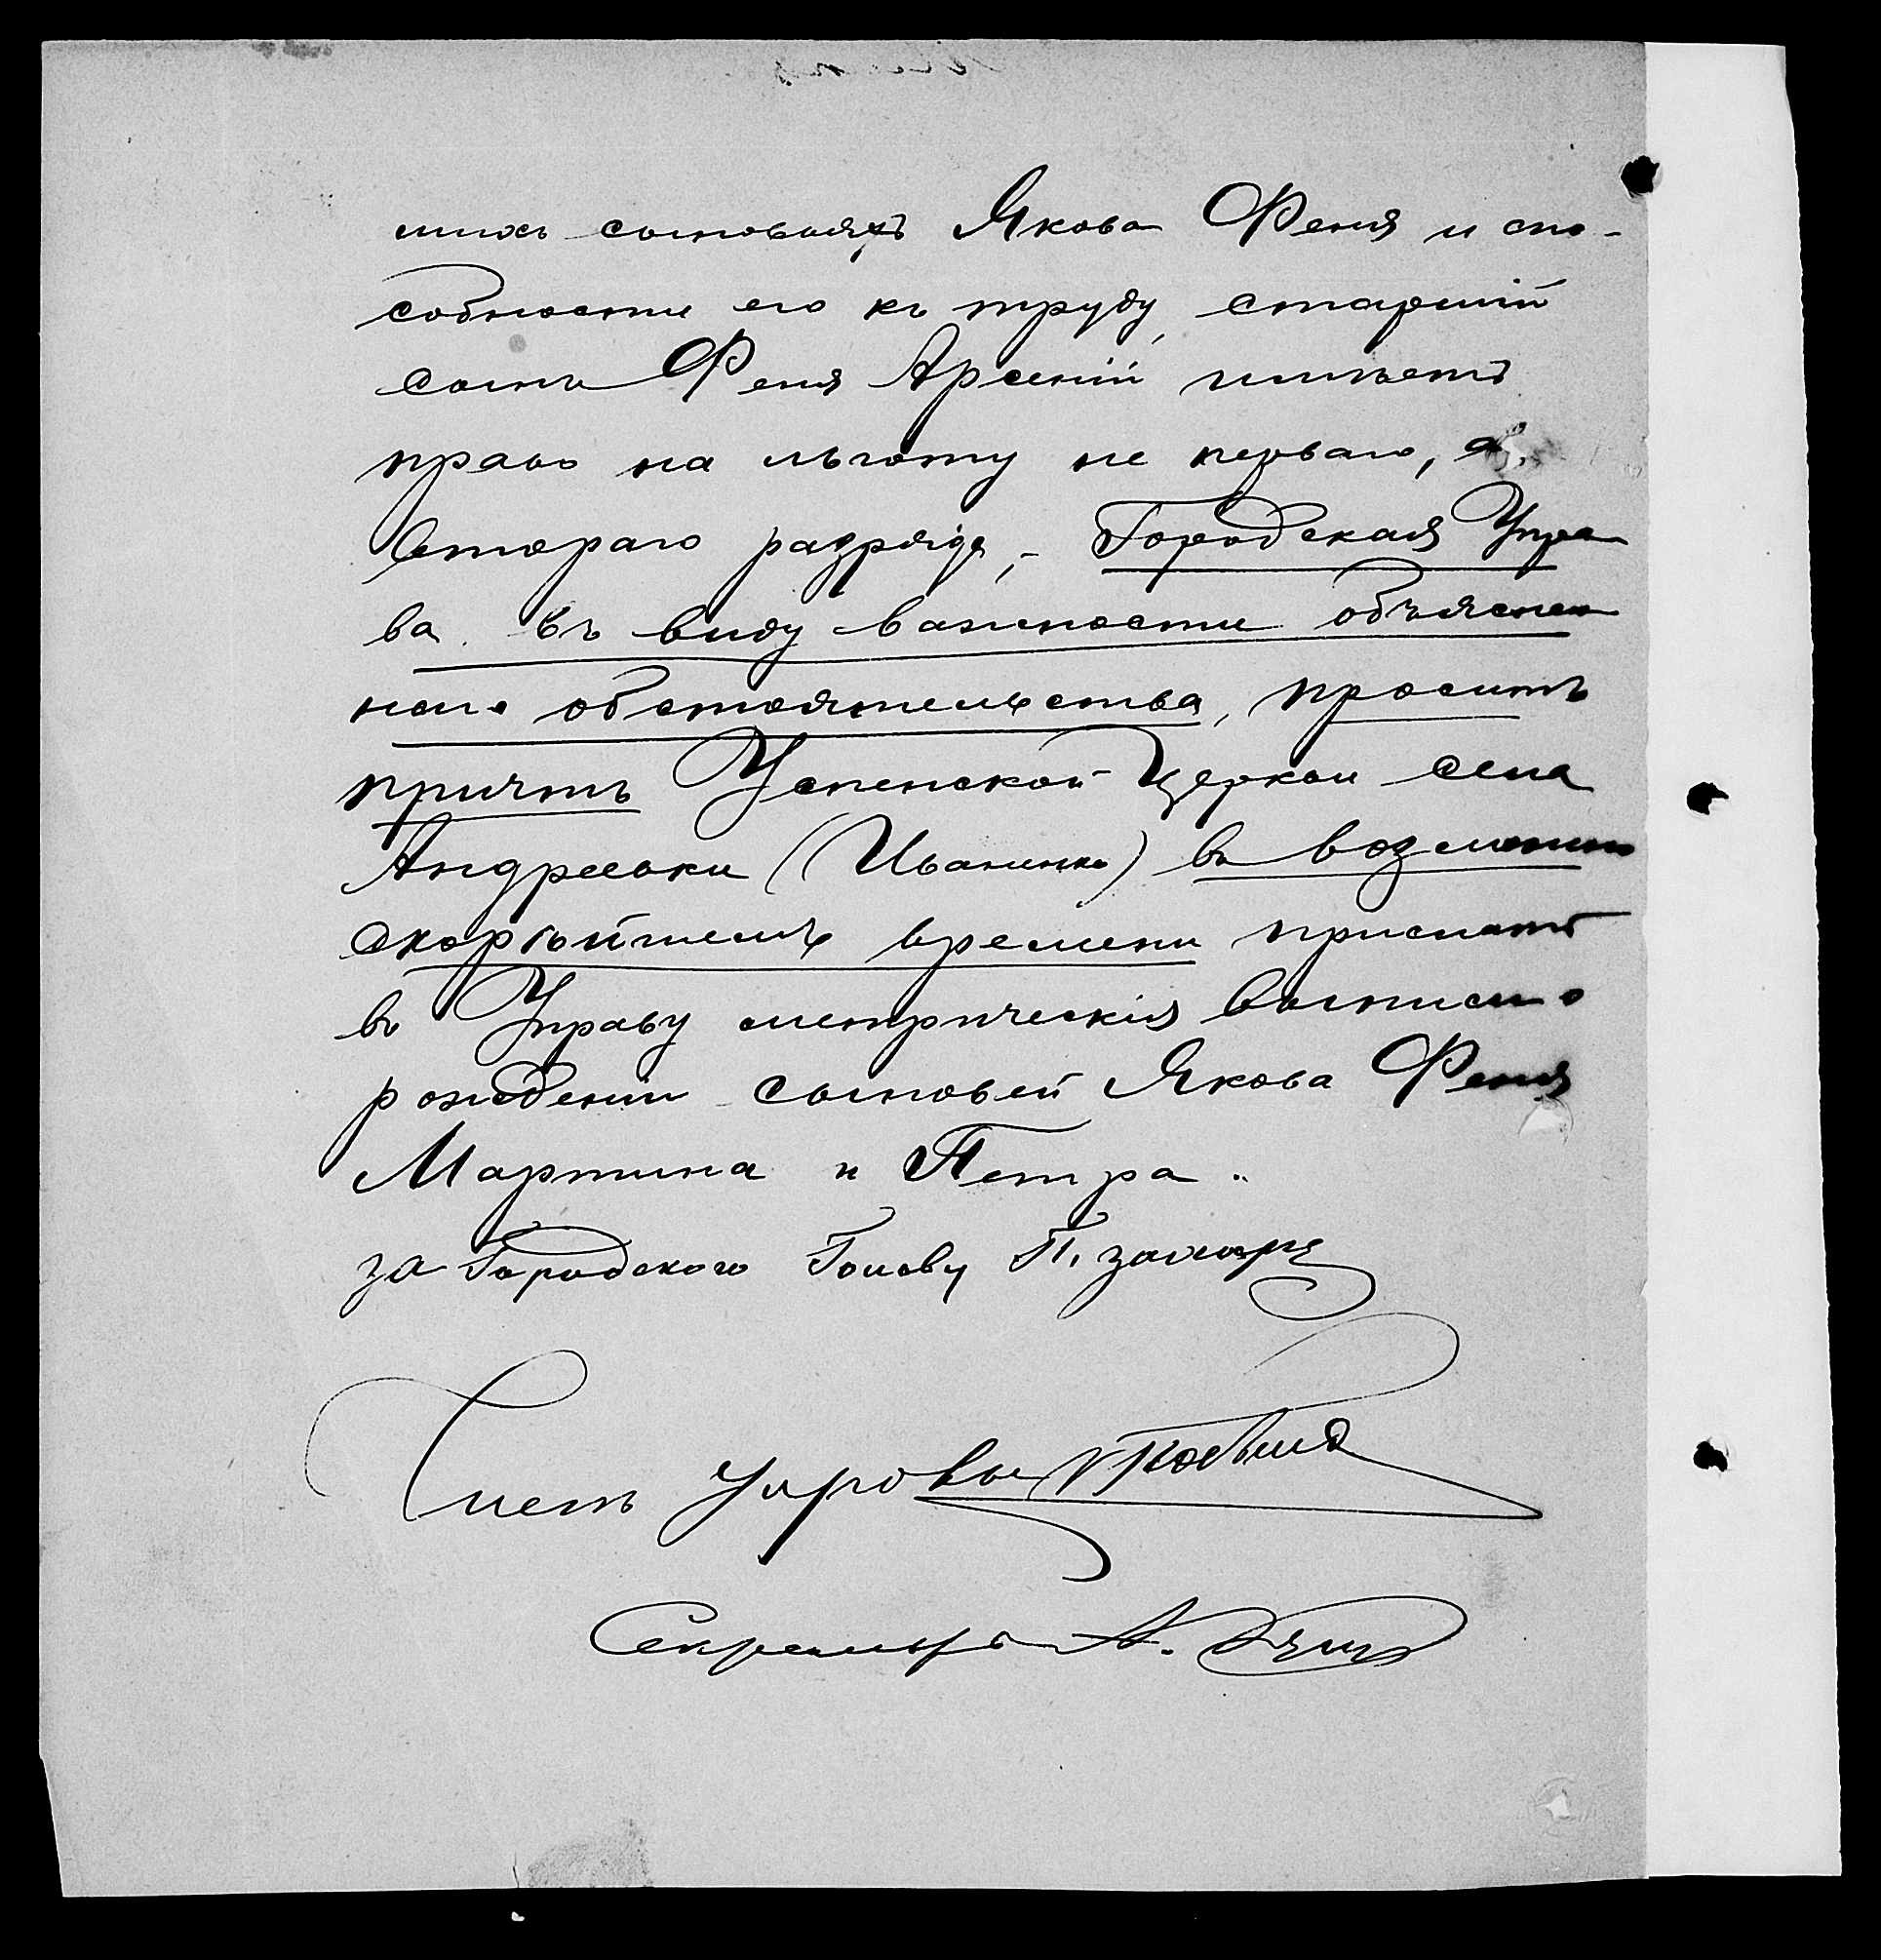 сыновьяхъ Якова Феня и спо-
собности его къ труду, старшій
сынъ Феня Арсеній имѣетъ
право на льготу не перваго, а
втораго разряда, - Городская Упра
ва въ виду важности объяснен
наго обстоятельства, проситъ
причтъ Успенской Церкви села
Андреевки (Иванинка) въ возможно
скорѣйшемъ времени прислать
въ Управу метрическія выписи о
рожденіи сыновей Якова Феня
Мартина и Петра.
за Городского Голову П.
Членъ Управы
Секретарь А.